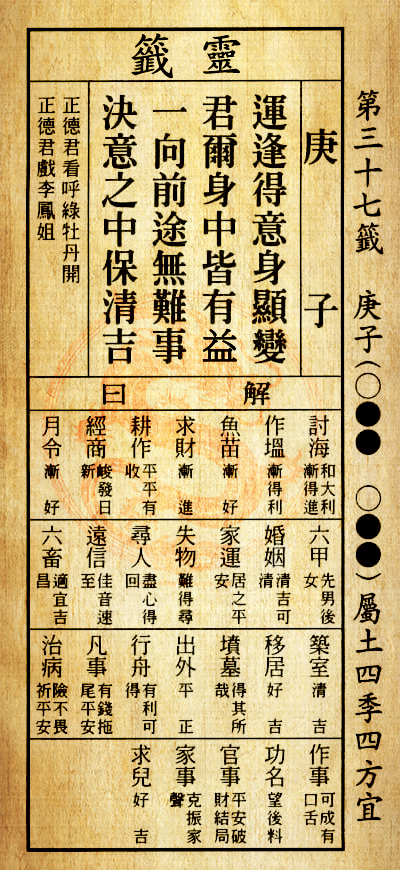 第三十七籤 庚子(○●● ○●●)屬土四季四方宜
靈籤
庚子
運逢得意身顯變
君爾身中皆有益
一向前途無難事
決意之中保清吉
正德君看呼綠牡丹開
正德君戲李鳳姐
解曰
討海 和大利漸得進
作塭 漸得利
魚苗 漸好
求財 漸進
耕作 平平有收
經商 峻發日新
月令 漸好
六甲 先男後女
婚姻 清吉可清
家運 居之平安
失物 難得尋
尋人 盡心得回
遠信 佳音速至
六畜 適宜吉昌
築室 清吉
移居 好吉
墳墓 得其所哉
出外 平正
行舟 有利可得
凡事 有錢拖尾平安
治病 險不畏祈平安
作事 可成有口舌
功名 望後料
官事 平安破財結局
家事 克振家聲
求兒 好吉